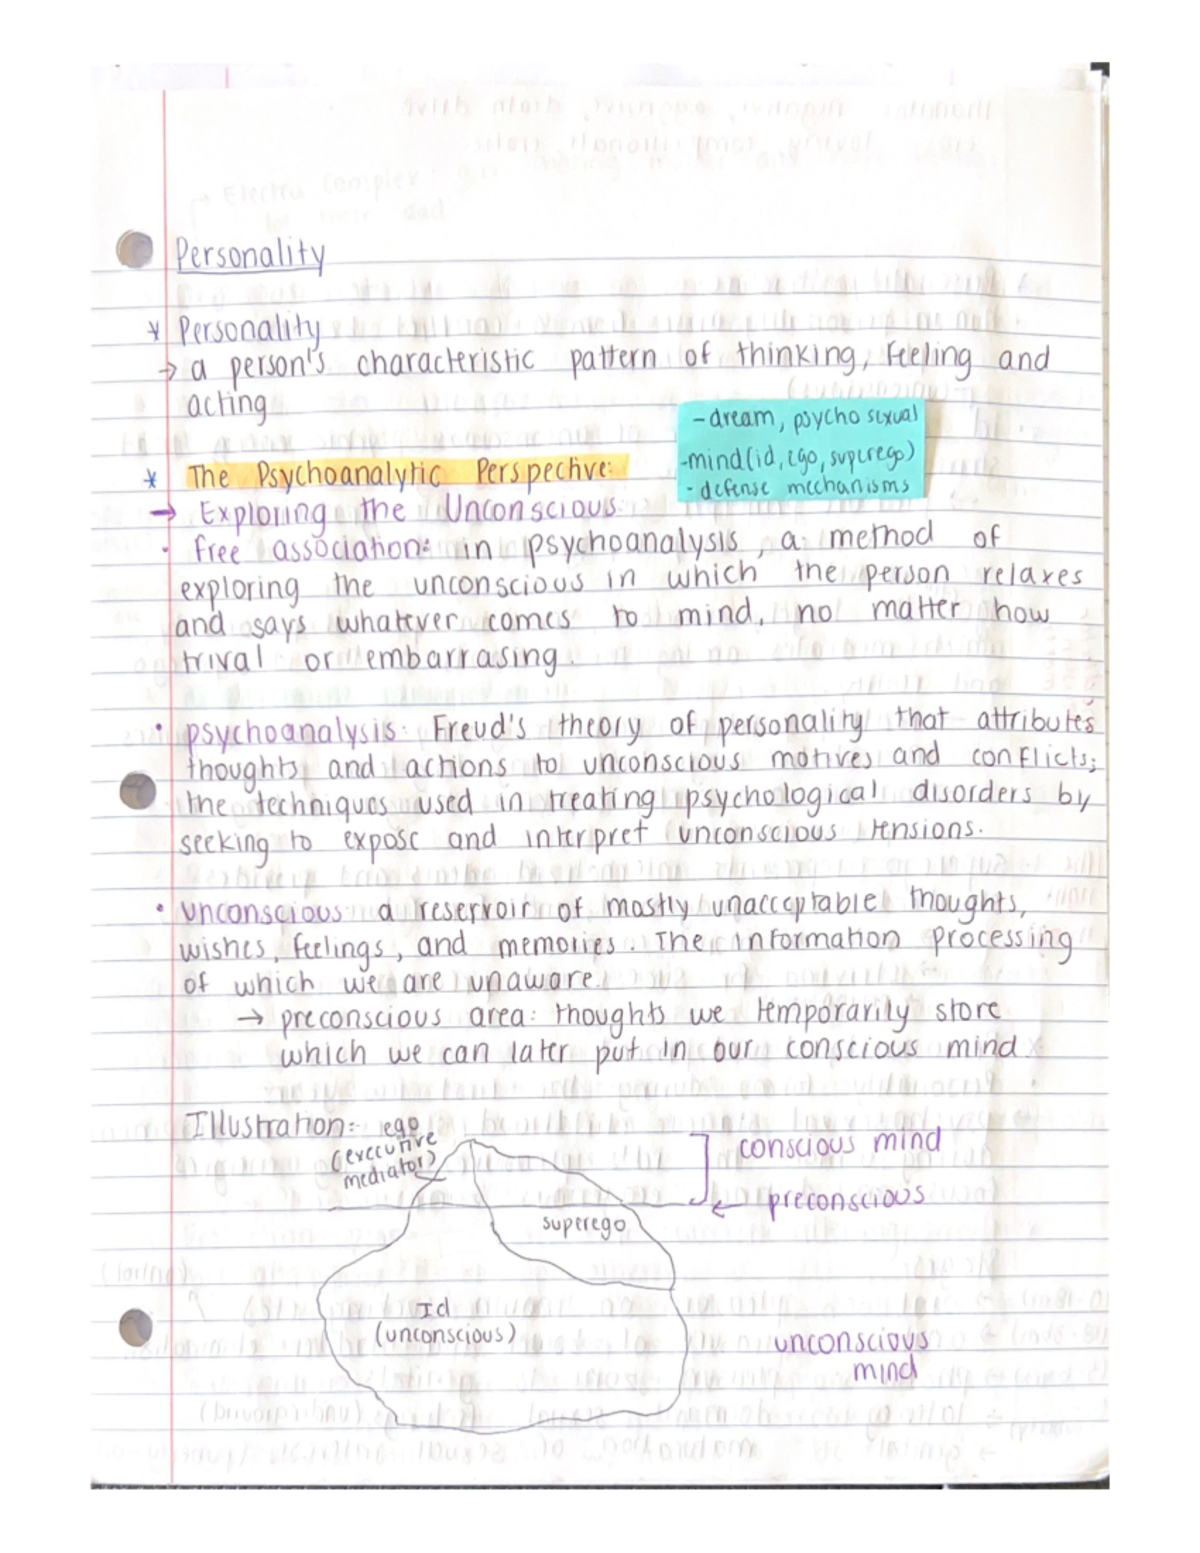 Personality
* Personality
→ a person's characteristic pattern of thinking, feeling and
acting
- dream, psycho sexual
- mind (id, ego, superego)
- defense mechanisms
* The Psychoanalytic Perspective:
→ Exploring the Unconscious
• free association: in psychoanalysis, a method of
exploring the unconscious in which the person relaxes
and says whatever comes to mind, no matter how
trival or embarrasing.
• psychoanalysis: Freud's theory of personality that attributes
thoughts and actions to unconscious motives and conflicts;
the techniques used in treating psychological disorders by
seeking to expose and interpret unconscious tensions.
• unconscious: a reservoir of mostly unacceptable thoughts,
wishes, feelings, and memories. The information processing
of which we are unaware.
→ preconscious area: thoughts we temporarily store
which we can later put in our conscious mind
Illustration: ego
(executive
mediator)
conscious mind
← preconscious
superego
Id
(unconscious)
unconscious
mind
Electra Complex: